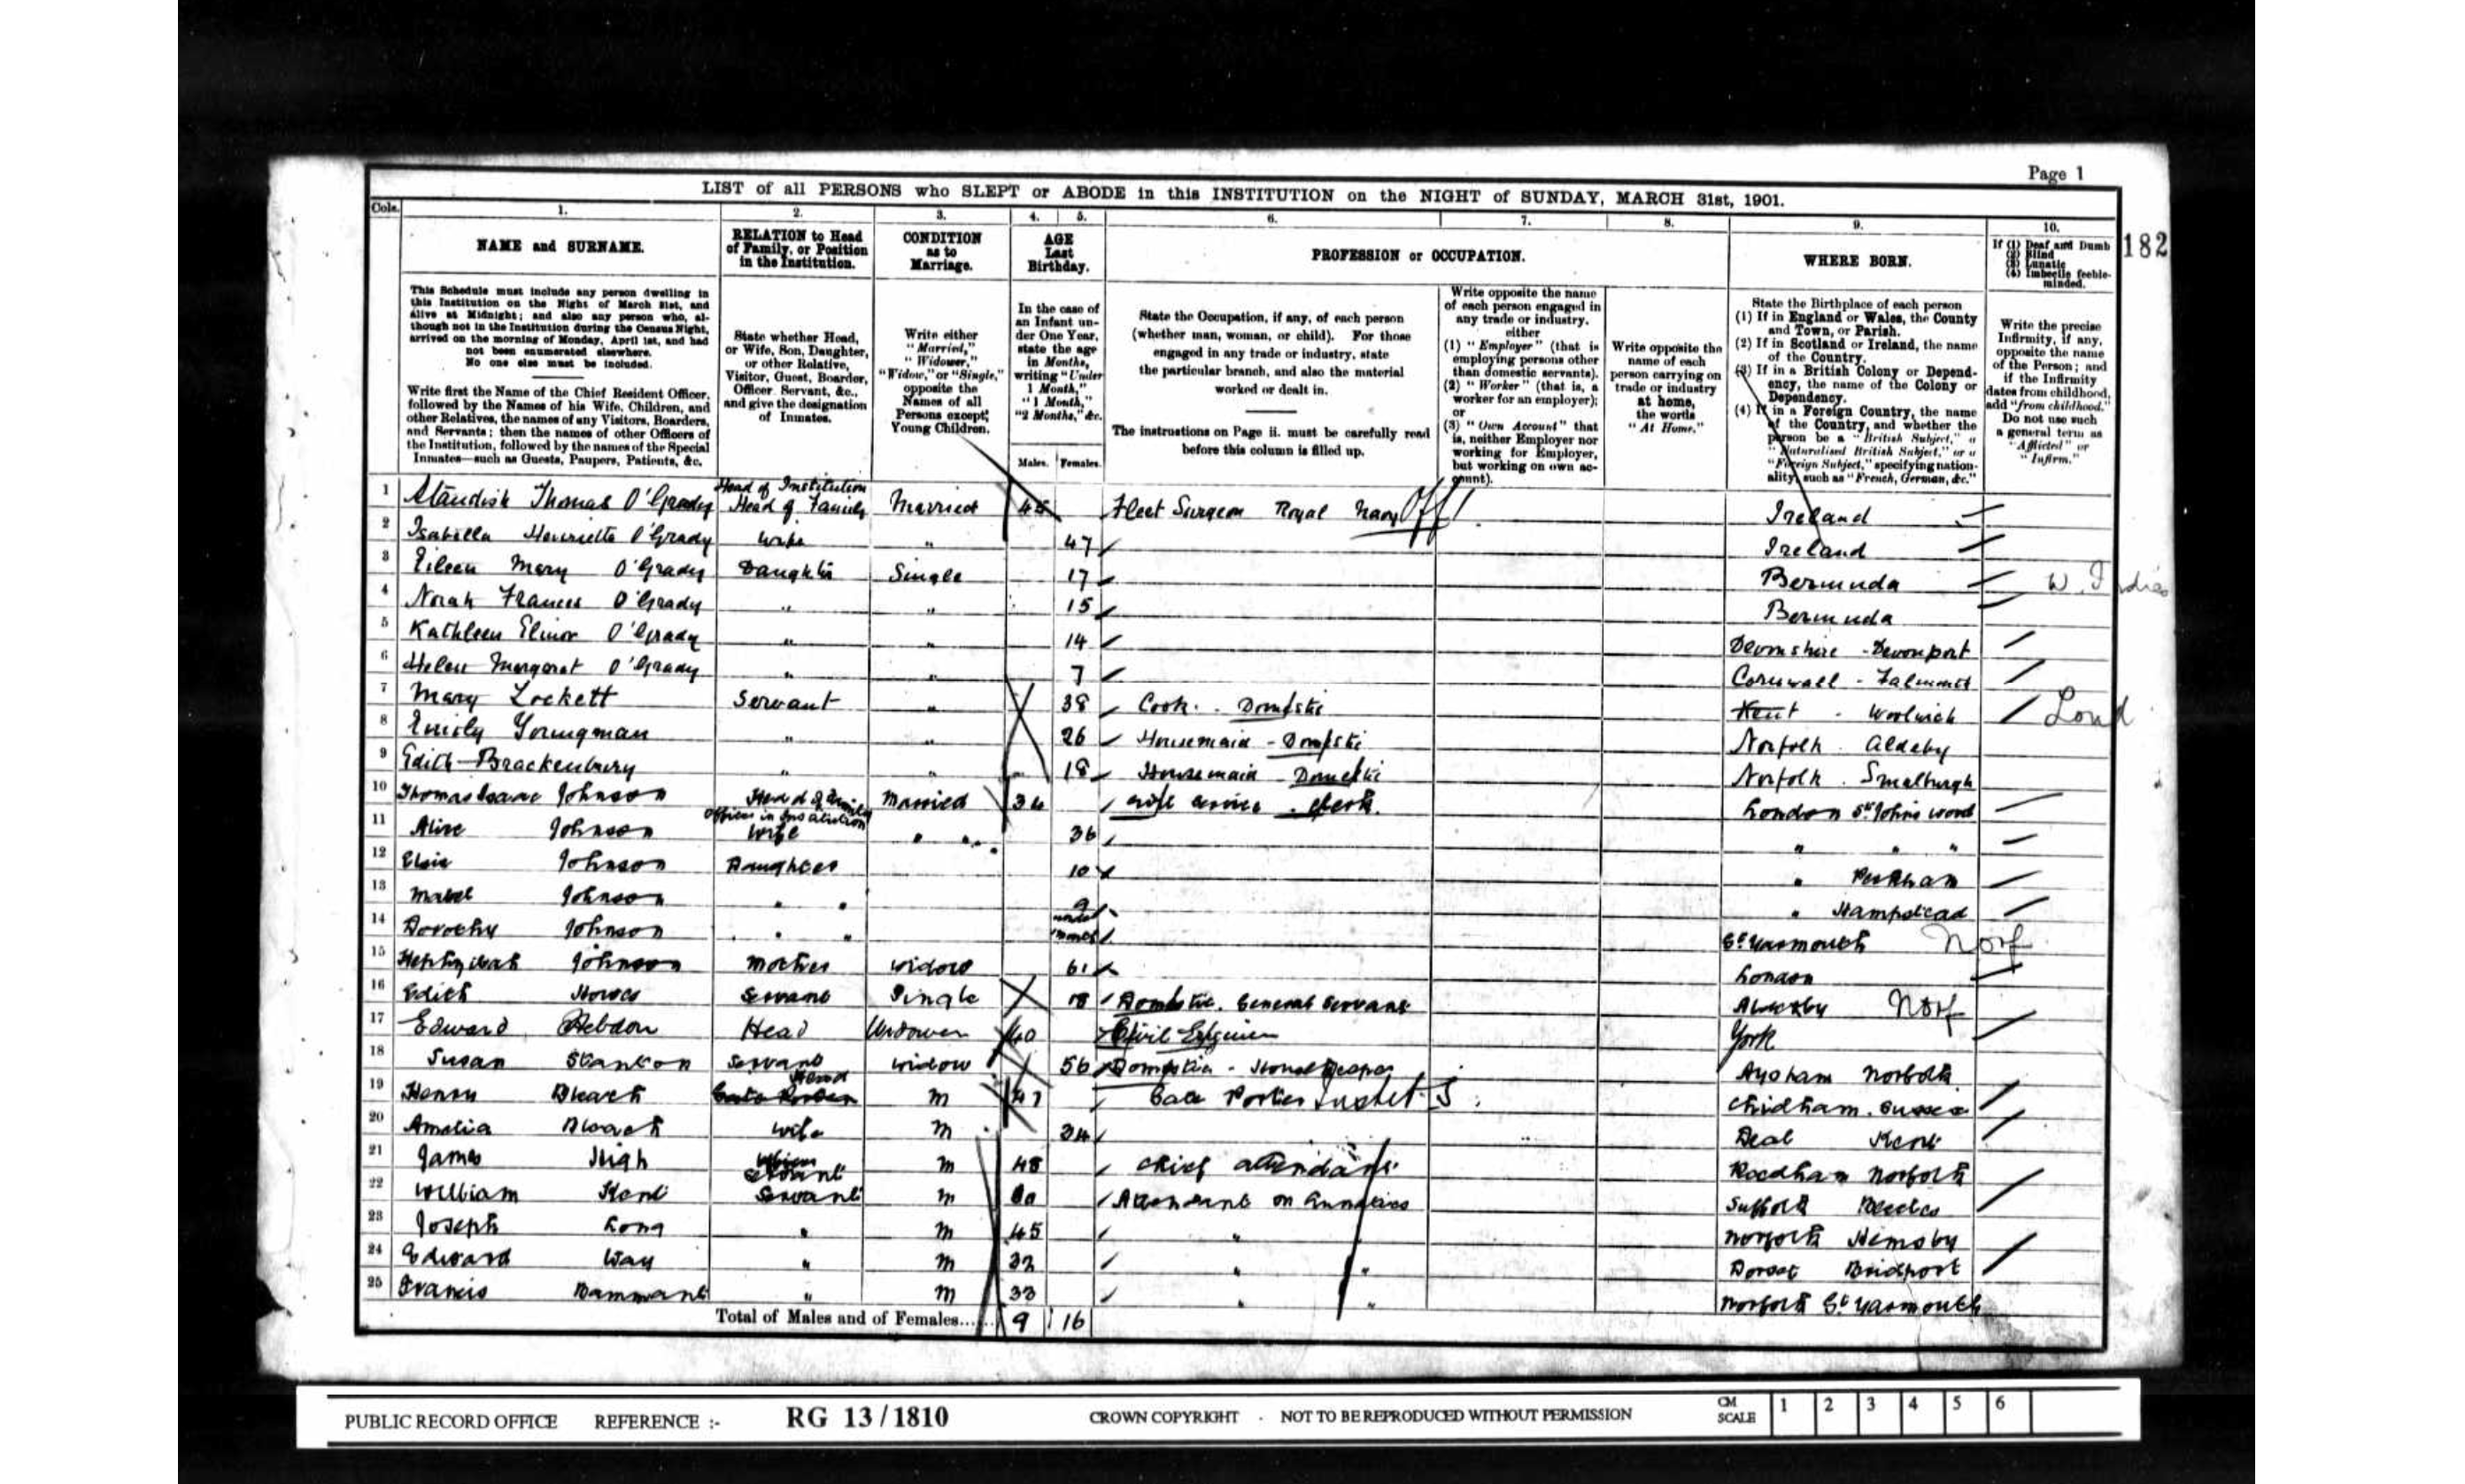 Page 1
LIST of all PERSONS who SLEPT or ABODE in this INSTITUTION on the NIGHT of SUNDAY, MARCH 31st, 1901.
Cols. 1. 2. 3. 4. 5. 6. 7. 8. 9. 10.
NAME and SURNAME.
This Schedule must include any person dwelling in
this Institution on the Night of March 31st, and
alive at Midnight; and also any person who, al-
though not in the Institution during the Census Night,
arrived on the morning of Monday, April 1st, and had
not been enumerated elsewhere.
No one else must be included.
Write first the Name of the Chief Resident Officer,
followed by the Names of his Wife, Children, and
other Relatives, the names of any Visitors, Boarders,
and Servants; then the names of other Officers of
the Institution, followed by the names of the Special
Inmates—such as Guests, Paupers, Patients, &c.
RELATION to Head
of Family, or Position
in the Institution.
State whether Head,
or Wife, Son, Daughter,
or other Relative,
Visitor, Guest, Boarder,
Officer, Servant, &c.,
and give the designation
of Inmates.
CONDITION
as to
Marriage.
Write either
"Married,"
"Widower,"
"Widow," or "Single,"
opposite the
Names of all
Persons except
Young Children.
AGE
Last
Birthday.
In the case of
an Infant un-
der One Year,
state the age
in Months,
writing "Under
1 Month,"
"1 Month,"
"2 Months," &c.
Males. Females.
PROFESSION or OCCUPATION.
State the Occupation, if any, of each person
(whether man, woman, or child). For those
engaged in any trade or industry, state
the particular branch, and also the material
worked or dealt in.
The instructions on Page ii. must be carefully read
before this column is filled up.
Write opposite the name
of each person engaged in
any trade or industry,
either
(1) "Employer" (that is
employing persons other
than domestic servants).
(2) "Worker" (that is, a
worker for an employer);
or
(3) "Own Account" that
is, neither Employer nor
working for Employer,
but working on own ac-
count).
Write opposite the
name of each
person carrying on
trade or industry
at home,
the words
"At Home."
WHERE BORN.
State the Birthplace of each person
(1) If in England or Wales, the County
and Town, or Parish.
(2) If in Scotland or Ireland, the name
of the Country.
(3) If in a British Colony or Depend-
ency, the name of the Colony or
Dependency.
(4) If in a Foreign Country, the name
of the Country, and whether the
person be a "British Subject," a
"Naturalised British Subject," or a
"Foreign Subject," specifying nation-
ality, such as "French, German, &c."
If (1) Deaf and Dumb
(2) Blind
(3) Lunatic
(4) Imbecile feeble-
minded.
Write the precise
Infirmity, if any,
opposite the name
of the Person; and
if the Infirmity
dates from childhood,
add "from childhood."
Do not use such
a general term as
"Afflicted" or
"Infirm."
182
1 Standish Thomas O'Grady Head of Institution Head of Family Married Fleet Surgeon Royal Navy Off Ireland
2 Isabella Henrietta O'Grady Wife " 47 Ireland
3 Eileen Mary O'Grady Daughter Single 17 Bermuda W. Indies
4 Norah Frances O'Grady " " 15 Bermuda
5 Kathleen Elinor O'Grady " " 14 Devonshire - Devonport
6 Helen Margaret O'Grady " " 7 Cornwall - Falmouth
7 Mary Lockett Servant " 38 Cook - Domestic Kent - Woolwich Lond
8 Emily Youngman " " 26 Housemaid - Domestic Norfolk Aldeby
9 Edith Brackenbury " " 18 Housemaid Domestic Norfolk Smalburgh
10 Thomas Isaac Johnson Head of Family Officer in Institution Married 34 Civil Service Clerk London St Johns Wood
11 Alice Johnson Wife " " 36 " " "
12 Elsie Johnson Daughter 10 " Peckham
13 Mabel Johnson " " 9 " Hampstead
14 Dorothy Johnson " " under month Gt Yarmouth Norf
15 Hephzibah Johnson Mother Widow 61 London
16 Edith Howes Servant Single 18 Domestic General Servant Norf
17 Edward Hebdon Head Widower 40 Civil Engineer York
18 Susan Stanton Servant Widow 56 Domestic - House Keeper Aylsham Norfolk
19 Henry Bleach Head M 47 Gate Porter Chidham Sussex
20 Amelia Bleach Wife M 34 Deal Kent
21 James High Servant M 48 Chief attendant Reedham Norfolk
22 William Kent Servant M Attendant on Lunatics Suffolk Beccles
23 Joseph Long " M 45 " Norfolk Hemsby
24 Edward Way " M 32 " " Dorset Bridport
25 Francis Bammant " M 33 " " Norfolk Gt Yarmouth
Total of Males and of Females...... 9 16
PUBLIC RECORD OFFICE REFERENCE :- RG 13/1810 CROWN COPYRIGHT · NOT TO BE REPRODUCED WITHOUT PERMISSION CM SCALE 1 2 3 4 5 6